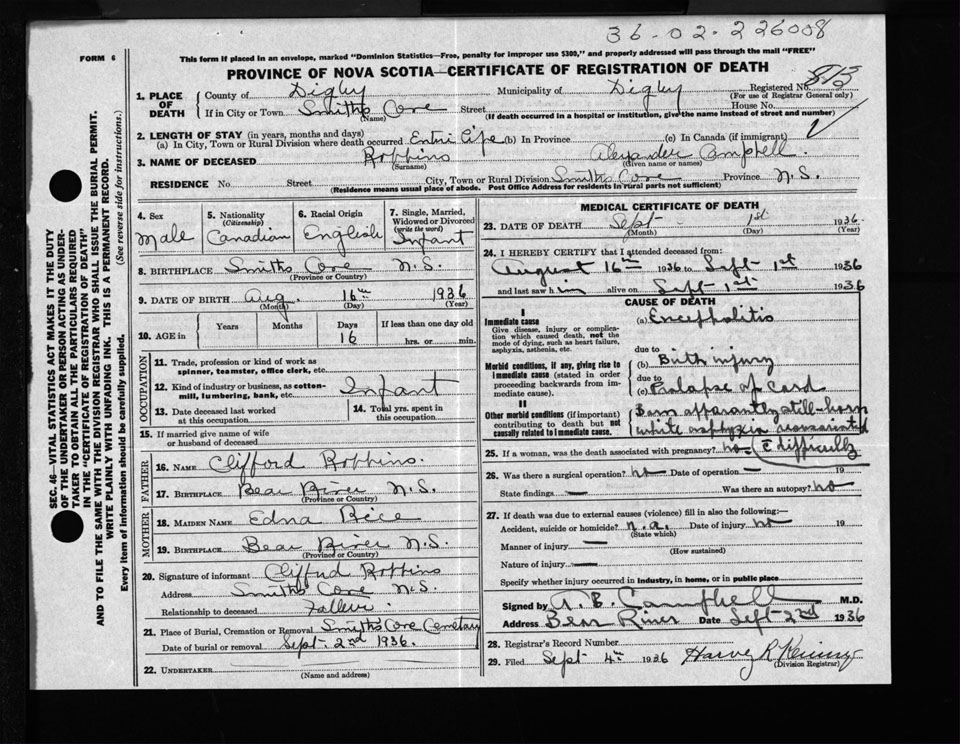 36-02-226008
FORM 6
This form if placed in an envelope, marked "Dominion Statistics—Free, penalty for improper use $300," and properly addressed will pass through the mail "FREE"
PROVINCE OF NOVA SCOTIA—CERTIFICATE OF REGISTRATION OF DEATH
1. PLACE OF DEATH
County of Digby Municipality of Digby Registered No. 813
(For use of Registrar General only)
If in City or Town Smiths Cove Street House No.
(Name) (If death occurred in a hospital or institution, give the name instead of street and number)
2. LENGTH OF STAY (in years, months and days)
(a) In City, Town or Rural Division where death occurred Entire Life (b) In Province (c) In Canada (if immigrant)
3. NAME OF DECEASED Robbins Alexander Campbell
(Surname) (Given name or names)
RESIDENCE No. Street City, Town or Rural Division Smiths Cove Province N.S.
(Residence means usual place of abode. Post Office Address for residents in rural parts not sufficient)
4. Sex
Male
5. Nationality
(Citizenship)
Canadian
6. Racial Origin
English
7. Single, Married, Widowed or Divorced
(write the word)
Infant
8. BIRTHPLACE Smiths Cove N.S.
(Province or Country)
9. DATE OF BIRTH Aug. 16th 1936
(Month) (Day) (Year)
10. AGE in
Years Months Days If less than one day old
16 hrs. or min.
OCCUPATION
11. Trade, profession or kind of work as spinner, teamster, office clerk, etc.
12. Kind of industry or business, as cotton-mill, lumbering, bank, etc. Infant
13. Date deceased last worked at this occupation
14. Total yrs. spent in this occupation
15. If married give name of wife or husband of deceased
FATHER
16. NAME Clifford Robbins.
17. BIRTHPLACE Bear River N.S.
(Province or Country)
MOTHER
18. MAIDEN NAME Edna Rice
19. BIRTHPLACE Bear River N.S.
(Province or Country)
20. Signature of informant Clifford Robbins
Address Smiths Cove N.S.
Relationship to deceased Father.
21. Place of Burial, Cremation or Removal Smiths Cove Cemetary
Date of burial or removal Sept. 2nd 1936.
22. UNDERTAKER
(Name and address)
MEDICAL CERTIFICATE OF DEATH
23. DATE OF DEATH Sept 1st 1936.
(Month) (Day) (Year)
24. I HEREBY CERTIFY that I attended deceased from:
August 16th 1936 to Sept 1st 1936
and last saw him alive on Sept 1st 1936
CAUSE OF DEATH
I
Immediate cause
Give disease, injury or complication which caused death, not the mode of dying, such as heart failure, asphyxia, asthenia, etc.
(a) Encephalitis
due to
Morbid conditions, if any, giving rise to immediate cause (stated in order proceeding backwards from immediate cause).
(b) Birth injury
due to
(c) Prolapse of cord
II
Other morbid conditions (if important) contributing to death but not causally related to immediate cause.
Born apparantly still-born
white asphyxia resuscitated
c difficulty
25. If a woman, was the death associated with pregnancy? no
26. Was there a surgical operation? no Date of operation — 19
State findings — Was there an autopsy? no
27. If death was due to external causes (violence) fill in also the following:—
Accident, suicide or homicide? n.a. Date of injury no 19
(State which)
Manner of injury —
(How sustained)
Nature of injury —
Specify whether injury occurred in industry, in home, or in public place
Signed by A. B. Campbell M.D.
Address Bear River Date Sept 2nd 1936
28. Registrar's Record Number
29. Filed Sept 4th 1936 Harvey R
(Division Registrar)
SEC. 46—VITAL STATISTICS ACT MAKES IT THE DUTY
OF THE UNDERTAKER OR PERSON ACTING AS UNDER-
TAKER TO OBTAIN ALL THE PARTICULARS REQUIRED
IN THE "CERTIFICATE OF REGISTRATION OF DEATH"
AND TO FILE THE SAME WITH THE DIVISION REGISTRAR WHO SHALL ISSUE THE BURIAL PERMIT.
WRITE PLAINLY WITH UNFADING INK. THIS IS A PERMANENT RECORD.
Every item of information should be carefully supplied. (See reverse side for instructions.)